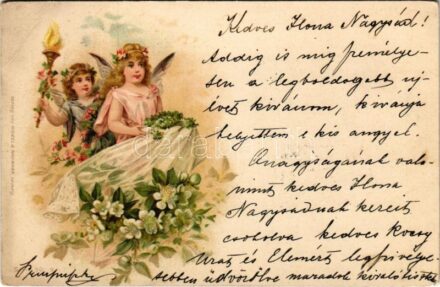 Kedves Ilona Nagysád!
Addig is mig személye-
sen a legboldogabb uj-
évet kivánom, kivánja
helyettem e kis angyel.
Őnagyságának vala-
mint kedves Ilona
Nagysádnak kezeit
csokolva kedves
Urat és Elemért legszivélye-
sebben üdvözölve maradok kiváló tisztelettel